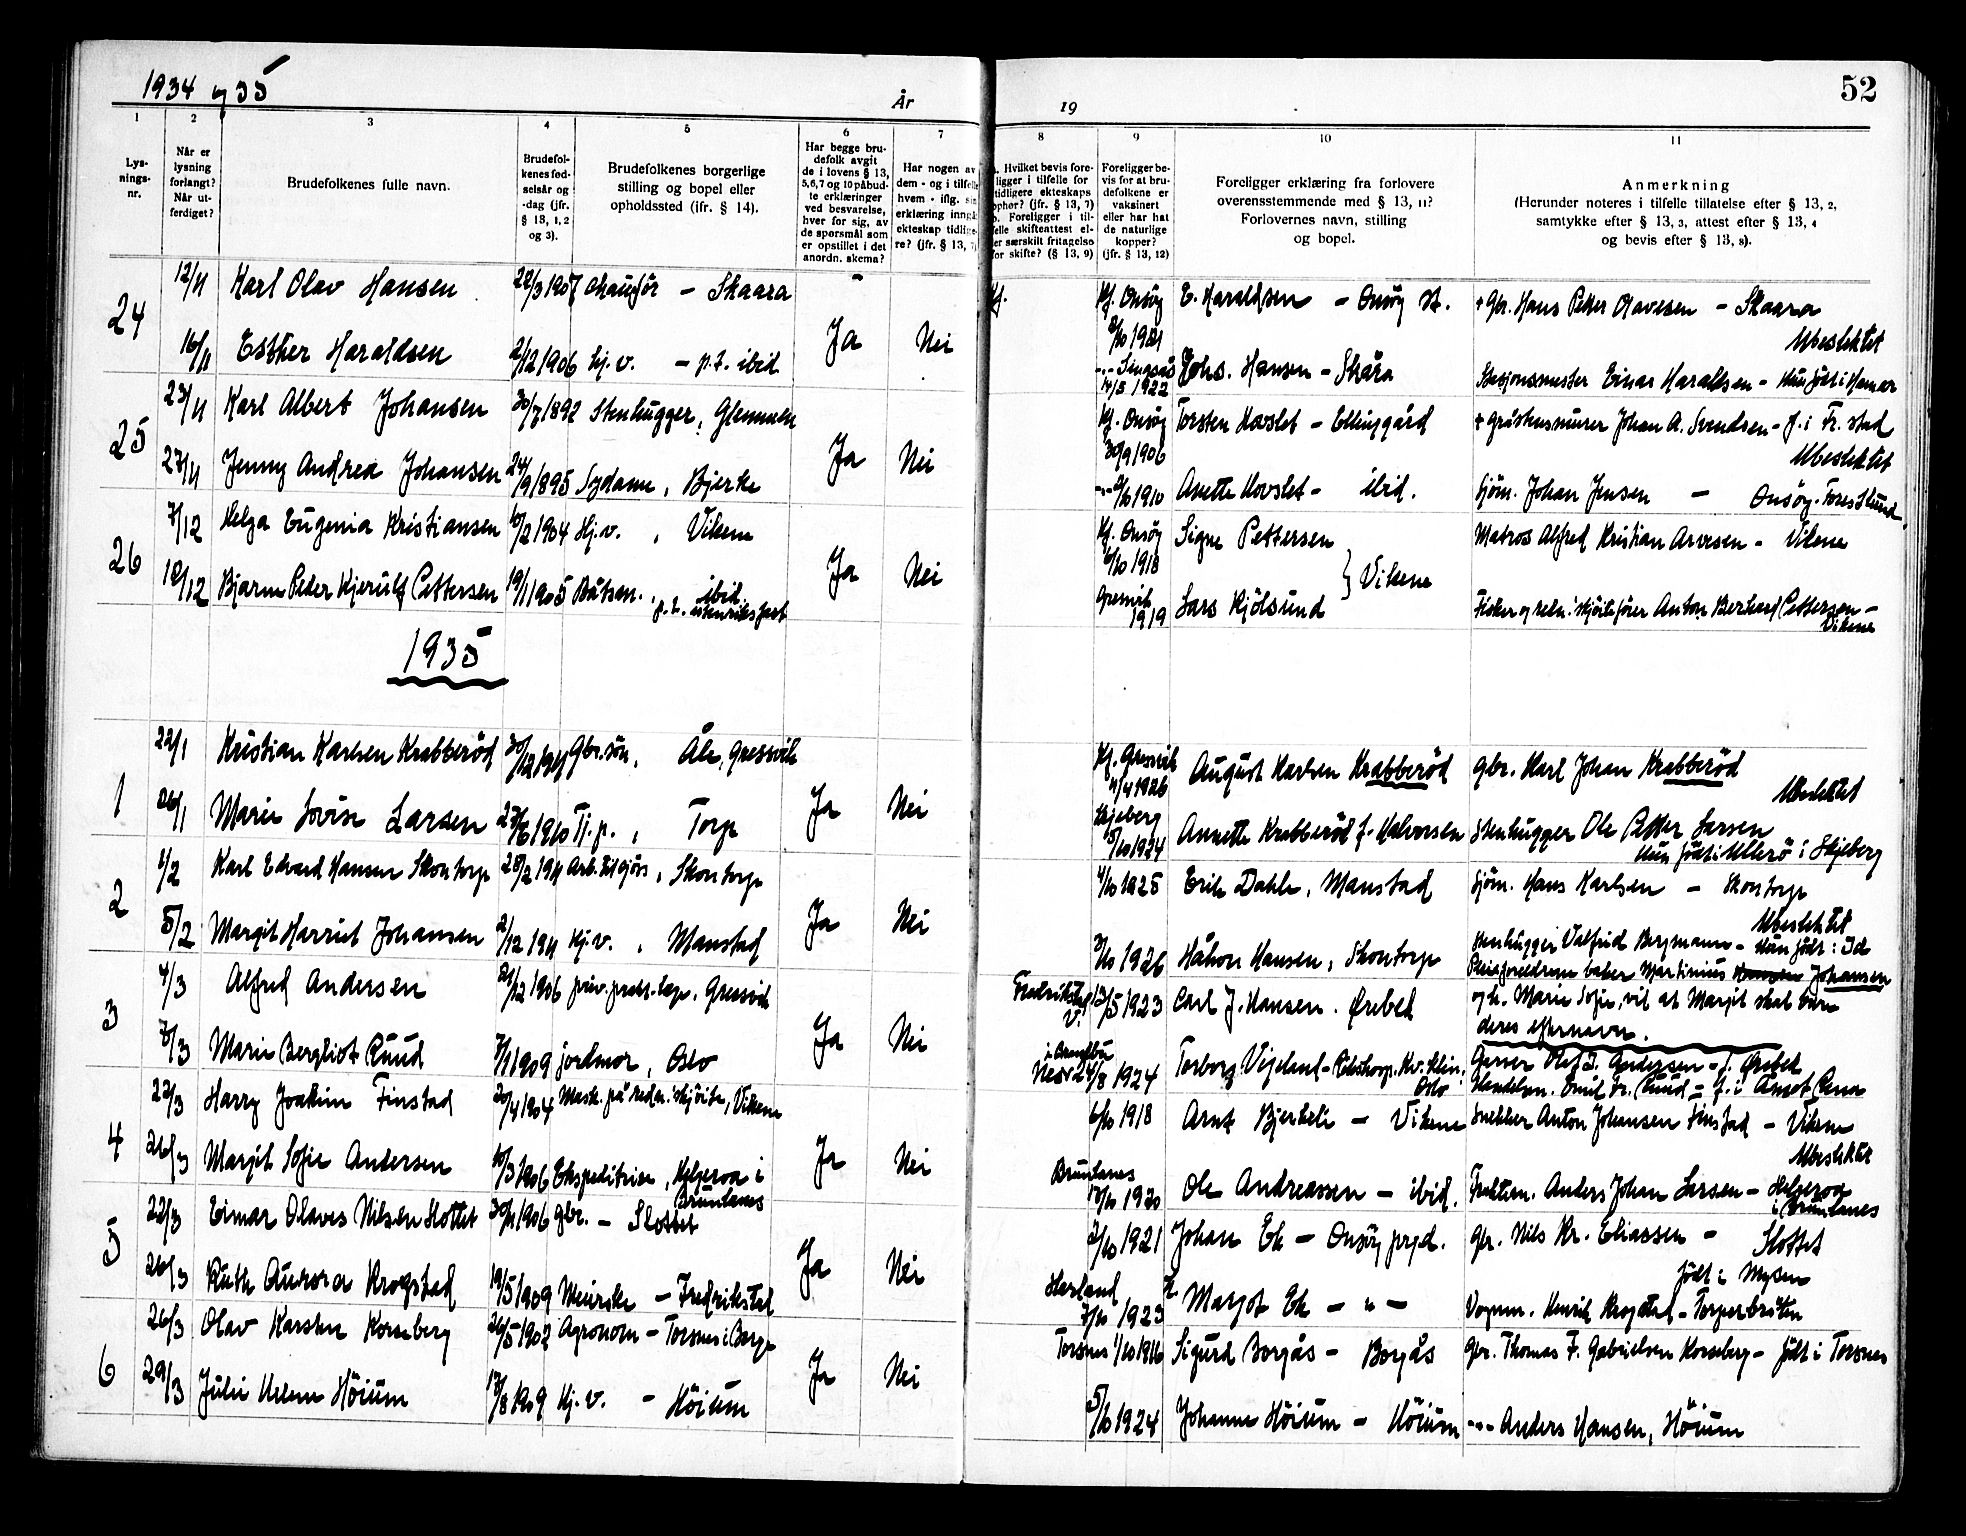 1934 og 35
År
19
52
1
2
3
4
5
6
7
8
9
10
11
Lys-
nings-
nr.
Når er
lysning
forlangt?
Når ut-
ferdiget?
Brudefolkenes fulle navn.
Brudefol-
kenes fød-
selsår og
-dag (jfr.
§ 13, 1, 2
og 3).
Brudefolkenes borgerlige
stilling og bopel eller
opholdssted (ifr. § 14).
Har begge bru-
defolk avgit
de i lovens § 13,
5,6,7 og 10 påbud-
te erklæringer
ved besvarelse,
hver for sig, av
de spørsmål som
er opstillet i det
anordn. skema?
Har nogen av
dem - og i tilfelle
hvem - iflg. sin
erklæring inngå
ekteskap tidlige-
re? (jfr. § 13, 7)
. Hvilket bevis fore-
ligger i tilfelle for
tidligere ekteskaps
ophør? (jfr. § 13, 7)
b. Foreligger i til-
felle skifteattest el-
ler særskilt fritagelse
for skifte? (§ 13, 9)
Foreligger be-
vis for at bru-
defolkene er
vaksinert
eller har hat
de naturlige
kopper?
(jfr. § 13, 12)
Foreligger erklæring fra forlovere
overensstemmende med § 13, 11?
Forlovernes navn, stilling
og bopel.
Anmerkning
(Herunder noteres i tilfelle tillatelse efter § 13, 2,
samtykke efter § 13, 3, attest efter § 13, 4
og bevis efter § 13, 8).
24 12/11 Karl Olav Hansen 22/3 1907 chaufför - Skaara - Kf. Kf. Onsöy 2/10 1921 E. Haraldsen - Onsöy st. + Gbr. Hans Petter Olavesen - Skaara
Ubeslektet
16/11 Esther Haraldsen 2/12 1906 Hj.v. - p.t. ibid. Ja Nei 14/5 1922 Johs. Hansen - Skåra Stasjonsmester Einar Haraldsen - Hun født i Hamar
25 23/11 Karl Albert Johansen 30/7 1892 Stenhugger, Glemmen Kf. Onsöy 30/9 1906 Torsten Hovslet - Ellingård + gråstensmurer Johan A. Svendsen - f. i Fr.stad
Ubeslektet
27/11 Jenny Andrea Johansen 24/9 1895 Sydame, Bjerke Ja Nei 2/10 1910 Anette Hovslet - ibid. Sjöm. Johan Jensen - Onsöy.
26 7/12 Helga Eugenia Kristiansen 10/2 1904 Hj.v., Vikene Kf. Onsöy 6/10 1918 Signe Pettersen Matros Alfred Kristian Arvesen - Vikene
} Vikene
12/12 Bjarne Peder Kjerulf Pettersen 19/1 1905 Båtsm., ibid. Ja Nei Gressvik 1919 Lars Kjölsund Fisker og redn.skjöitefører Anton Berhard Pettersen - Vikene
1935
1 22/1 Kristian Karlsen Krabberöd Gbr.sön, Åle, Gressvik Kf. Gressvik 11/4 1926 August Karlsen Krabberöd Gbr. Karl Johan Krabberöd
Ubeslektet
26/1 Marie Lovise Larsen 27/6 1910 Tj.p., Torp Ja Nei Skjeberg 5/10 1924 Annette Krabberöd f. Halvorsen Stenhugger Ole Petter Larsen
Hun født i Ullerö i Skjeberg
2 1/2 Karl Edvard Hansen Skontorp 28/2 1911 Arb. , Skontorp 4/10 1925 Erik Dahle, Manstad Sjöm. Hans Karlsen - Skontorp
Ubeslektet
5/2 Margit Harriet Johansen 2/12 1911 Hj.v., Manstad Ja Nei 3/10 1926 Håkon Hansen, Skontorp Stenhugger Valfrid Bergmann - Hun født i Id
Pleieforeldrene baker Martinius Johansen
og h. Marie Sofie, vil at Margit skal bære
deres efternavn.
3 4/3 Alfred Andersen 21/12 1906 priv. prakt. læge, Gressvik Fredrikstad V. 13/5 1923 Carl J. Hansen. Ørebek Garver Olaf J. Andersen - f. Ørebek
7/3 Marie Bergliot Ruud 7/1 1909 jordmor, Oslo Ja Nei 24/8 1924 Torborg Vigeland - Rikshosp. Kv. Klin. Oslo Handelsm. Emil Fr. Ruud - f. i Åmot Rena
4 22/3 Harry Joakim Finstad 20/4 1904 Mask. på redn.skjöite, Vikene 6/10 1918 Arnt Bjerkeli - Vikene Snekker Anton Johansen Finstad - Vikene
Ubeslektet
26/3 Margit Sofie Andersen 10/3 1906 Ekspeditrise, Helgeroa i Brunlanes Ja Nei Brunlanes 17/10 1920 Ole Andreassen - ibid. Fraktem. Anders Johan Larsen - Helgeroa i Brunlanes
5 22/3 Einar Olaves Nilsen Slottet 30/11 1906 gbr. - Slottet 2/10 1921 Johan Ek - Onsöy prgd. Gbr. Nils Kr. Eliassen - Slottet
født i Mysen
26/3 Ruth Aurora Krogstad 19/5 1909 Meierske - Fredrikstad Ja Nei 7/10 1923 Margot Ek - " - Vognm. Henrik Krogstad - Torperbråten
6 26/3 Olav Karsten Korseberg 26/5 1902 Agronom - Torsnes i Borge Torsnes 1/10 1916 Sigurd Borgås - Borgås Gbr. Thomas F. Gabrielsen Korseberg - født i Torsnes
29/3 Julie Helene Höium 17/8 1909 Hj.v. - Höium Ja Nei 5/10 1924 Johanne Höium - Höium -"- Anders Hansen, Höium